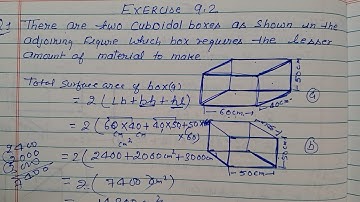 EXERCISE 9.2
There are two cuboidal boxes as shown in the
adjoining figure which box requires the lesser
amount of material to make
Total surface area of box(a)
= 2(lb+bh+hl)
= 2(60×40+40×50+50×60)
cm cm
cm²
= 2(2400+2000cm²+3000cm
= 2(7400cm²)
2400
2000
3000
7400
50cm
60cm
40cm
(a)
50cm
(b)